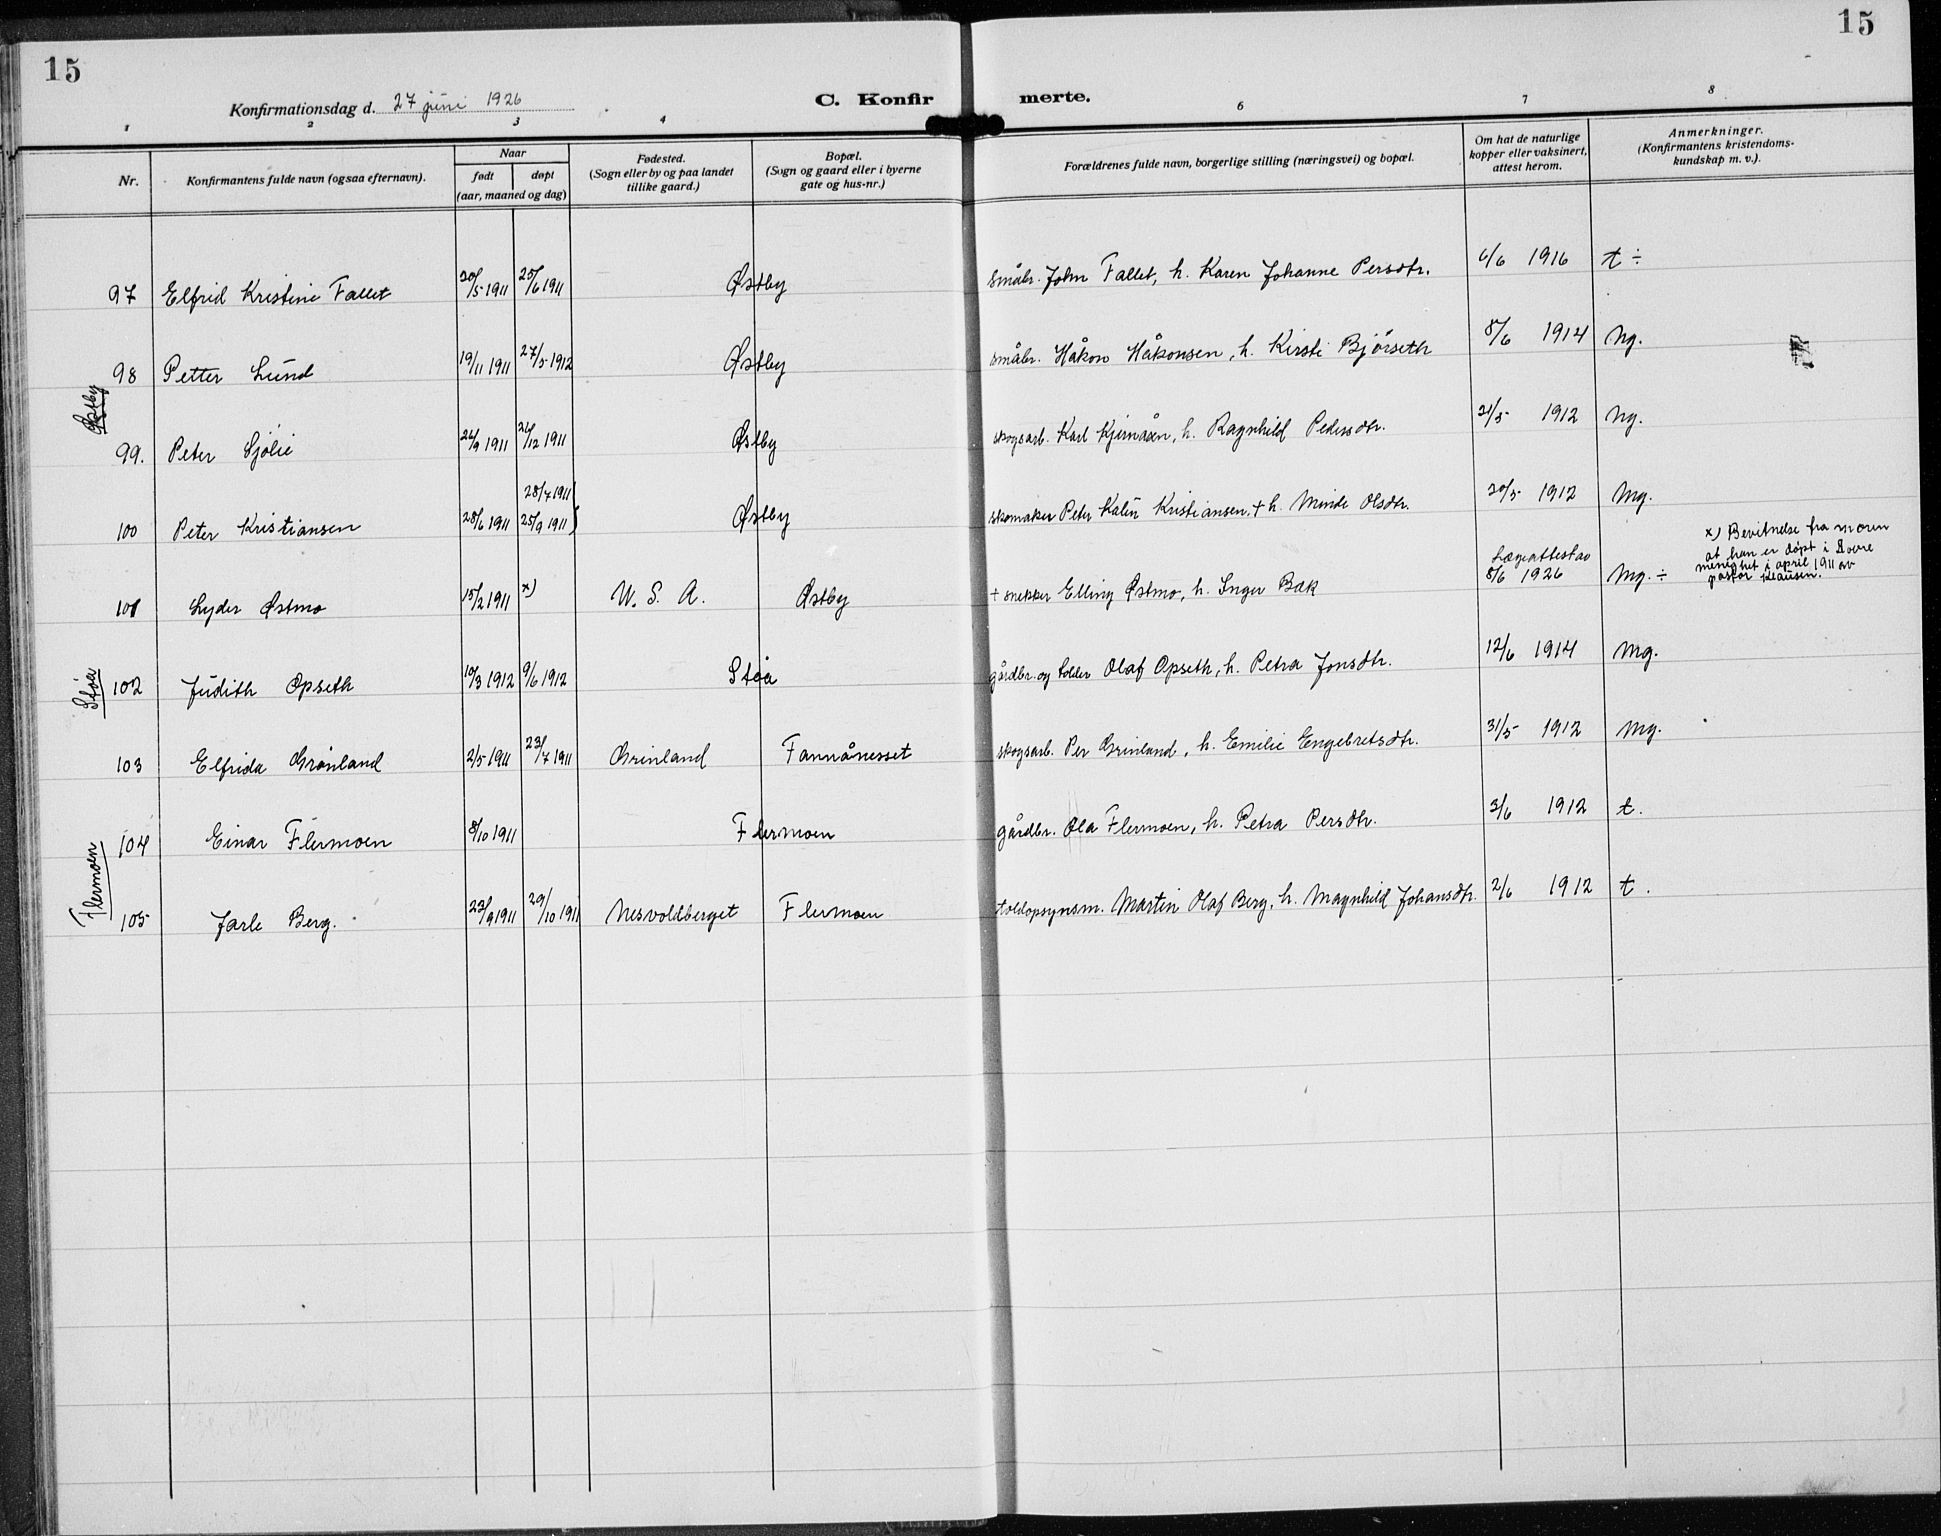 15
15
Konfirmationsdag d. 27 juni 1926
C. Konfir merte.
1 2 3 4 6 7 8
Nr.
Konfirmantens fulde navn (ogsaa efternavn).
Naar
født døpt
(aar, maaned og dag)
Fødested.
(Sogn eller by og paa landet
tillike gaard.)
Bopæl.
(Sogn og gaard eller i byerne
gate og hus-nr.)
Forældrenes fulde navn, borgerlige stilling (næringsvei) og bopæl.
Om hat de naturlige
kopper eller vaksinert,
attest herom.
Anmerkninger.
(Konfirmantens kristendoms-
kundskap m. v.).
97 Elfrid Kristine Fallet 30/5 1911 25/6 1911 Østby småbr. John Fallet, h. Karen Johanne Persdtr. 6/6 1916 t ÷
Østby
98 Petter Lund 19/11 1911 27/5 1912 Østby småbr. Håkon Håkonsen, h. Kirsti Bjørseth 8/6 1914 Ng.
99. Peter Sjølie 26/9 1911 26/12 1911 Østby skogsarb. Karl Kjernåen, h. Ragnhild Pedersdtr. 31/5 1912 Ng.
28/7 1911
100 Peter Kristiansen 28/6 1911 25/9 1911 Østby skomaker Peter Kalin Kristiansen, + h. Minde Olsdtr. 30/5 1912 Mg.
101 Lyder Østmo 15/2 1911 x) U. S. A. Østby + snekker Elling Østmo, h. Inger Bak Lægeattest av
8/6 1926 Mg. ÷
x) Bevitnelse fra moren
at han er døpt i
menighet i april 1911 av
pastor Klausen.
Støa
102 Judith Opseth 10/3 1912 9/6 1912 Støa gårdbr. og tolder Olaf Opseth, h. Petra Jonsdtr. 12/6 1914 Mg.
103 Elfrida Grønland 2/5 1911 23/7 1911 Grinland Fannånesset skogsarb. Per Grinland, h. Emilie Engebretsdtr. 31/5 1912 Mg.
Flermoen
104 Einar Flermoen 8/10 1911 Flermoen gårdbr. Ola Flermoen, h. Petra Persdtr. 3/6 1912 t.
105 Jarle Berg. 23/9 1911 29/10 1911 Nesvoldberget Flermoen toldopsynsm. Martin Olaf Berg, h. Magnhild Johansdtr. 2/6 1912 t.